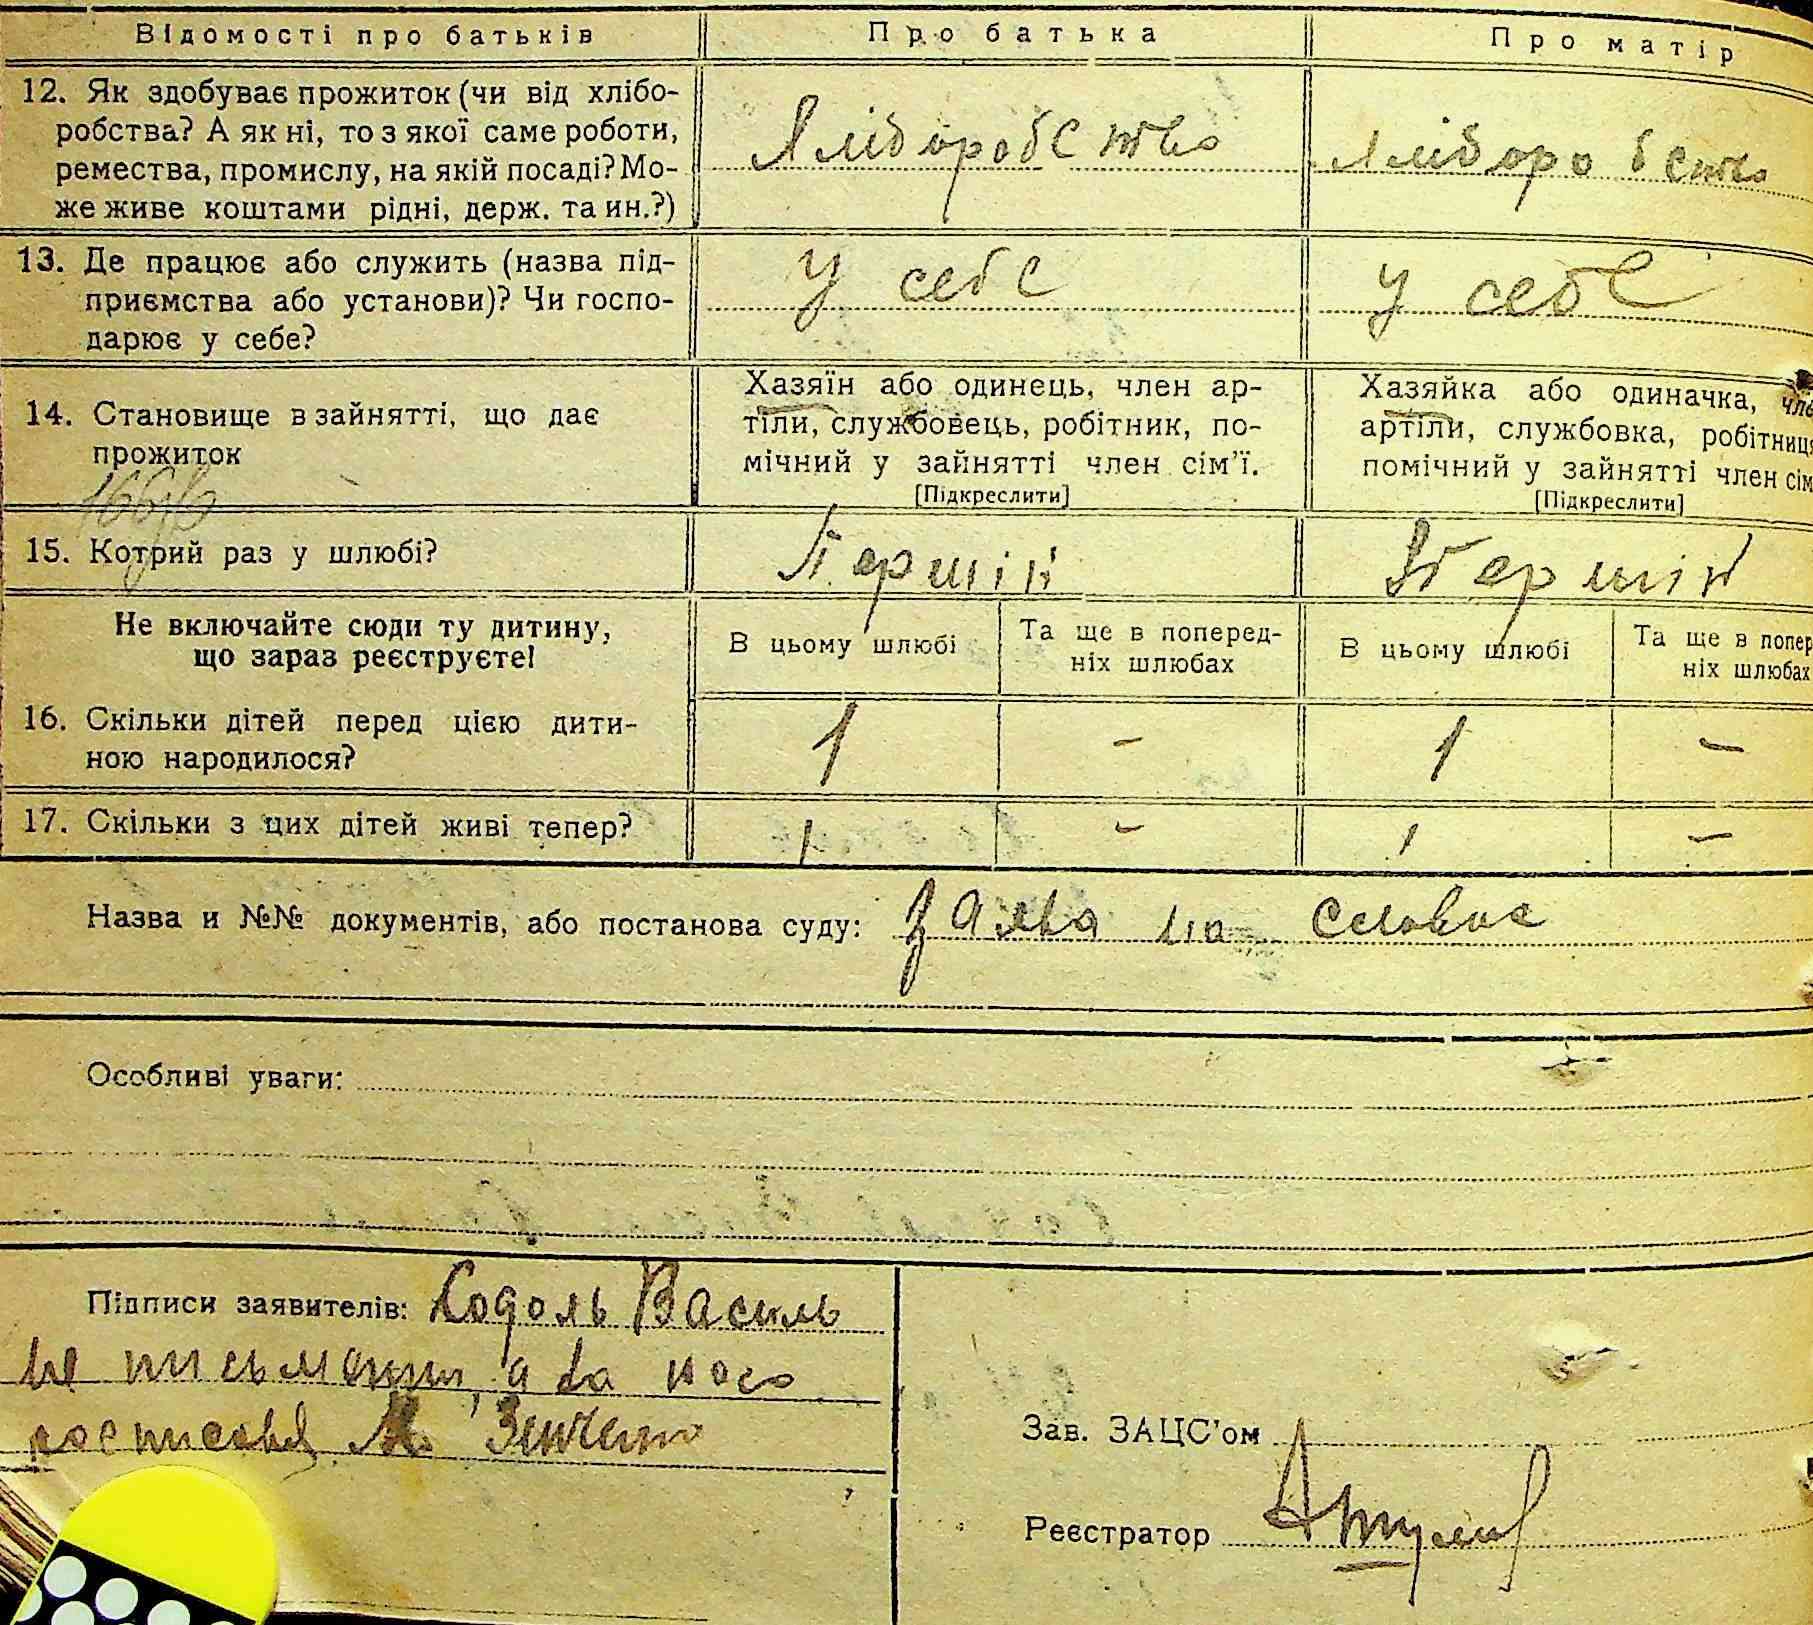 Відомості про батьків Про батька Про матір
12. Як здобуває прожиток (чи від хлібо-
робства? А як ні, то з якої саме роботи,
ремества, промислу, на якій посаді? Мо-
же живе коштами рідні, держ. та ин.?)
Хліборобство Хліборобство
13. Де працює або служить (назва під-
приємства або установи)? Чи госпо-
дарює у себе?
У себе У себе
14. Становище в зайнятті, що дає
прожиток
Хазяїн або одинець, член ар-
тіли, службовець, робітник, по-
мічний у зайнятті член сім'ї.
[Підкреслити]
Хазяйка або одиначка, чле
артіли, службовка, робітниця
помічний у зайнятті член сім
[Підкреслити]
15. Котрий раз у шлюбі? Першій Першій
Не включайте сюди ту дитину,
що зараз реєструєте!
В цьому шлюбі
Та ще в поперед-
ніх шлюбах
В цьому шлюбі
Та ще в попер
ніх шлюбах
16. Скільки дітей перед цією дити-
ною народилося?
1 - 1 -
17. Скільки з цих дітей живі тепер? 1 - 1 -
Назва и №№ документів, або постанова суду: Заява на словах
Особливі уваги:
Підписи заявителів: Содоль Василь
не письменни, а за його
росписався М. Зинченко
Зав. ЗАЦС'ом
Реєстратор